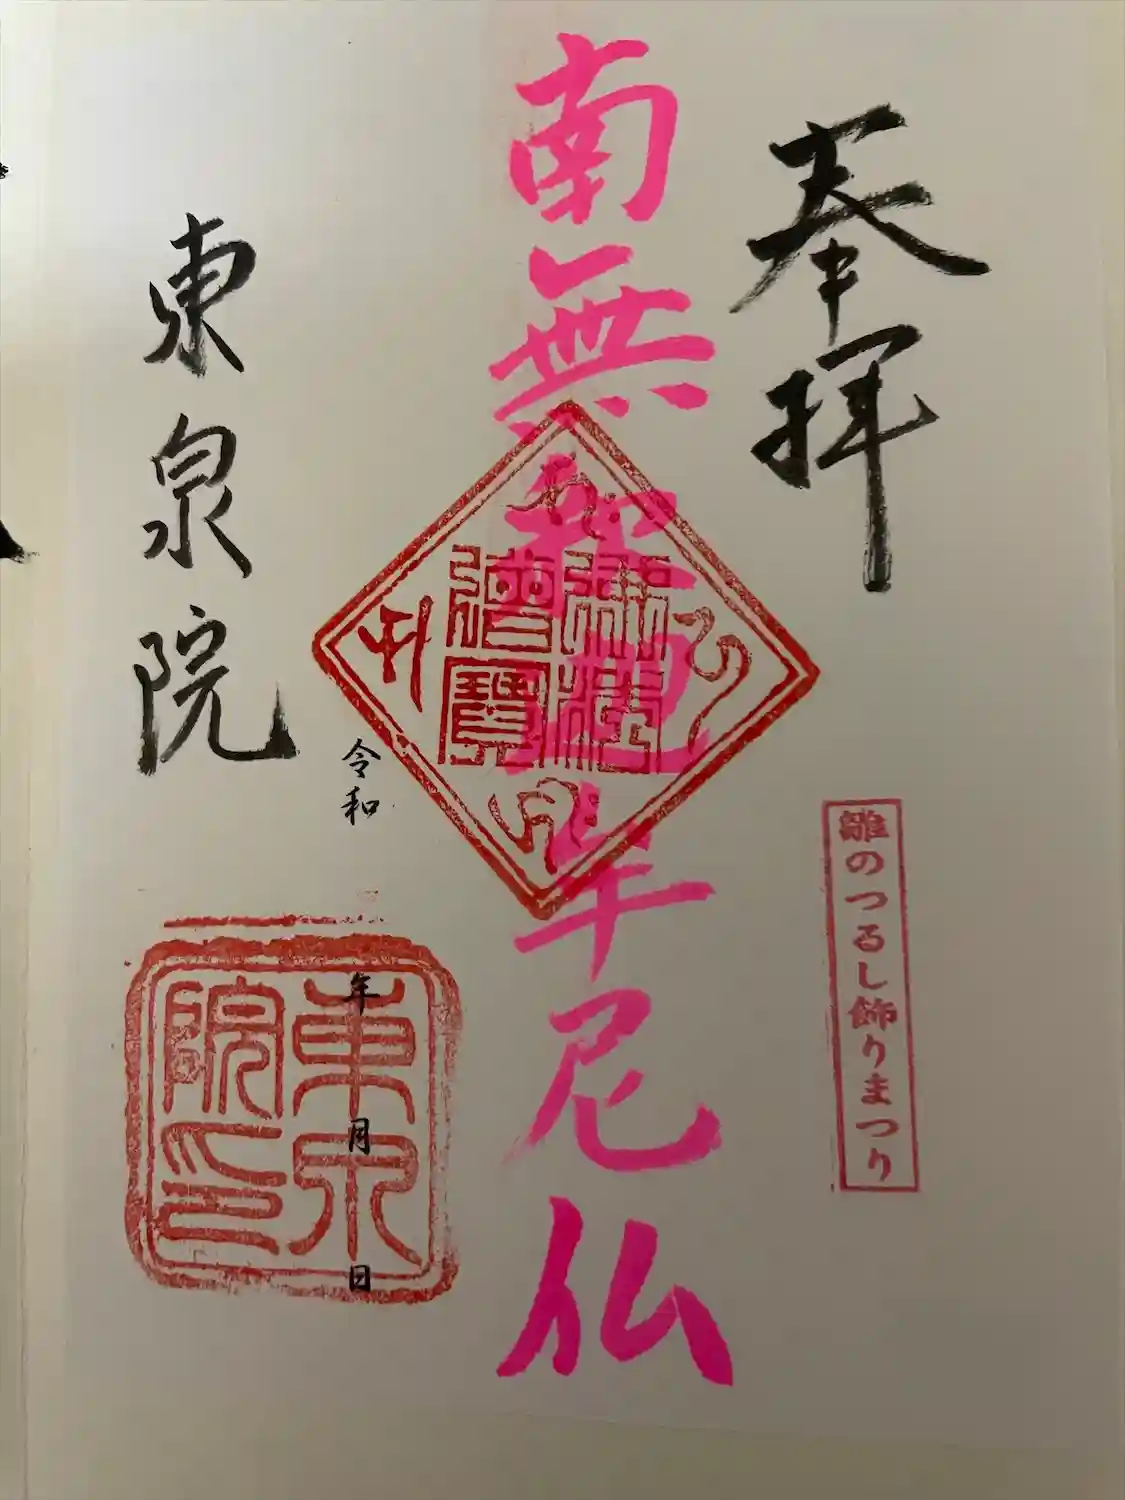 奉拝
雛のつるし飾りまつり
南無釈迦牟尼仏
佛法僧寳
令和 年 月 日
東泉院
東泉院印